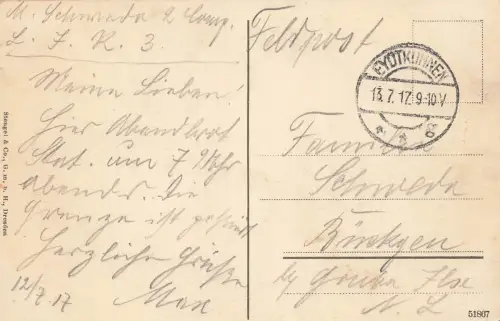 M. Schweda 2 Comp.
L. J. R. 3.
Feldpost
Meine Lieben!
Hier Abendbrot
Stat. um 7 Uhr
abends. Die
Grenze ist passiert
Herzliche Grüße
12/7 17 Max
Stengel & Co., G. m. b. H., Dresden
EYDTKUHNEN
13.7.17.9-10V
Familie
Schweda
Bückgen
b/ Grube Ilse
N. L.
51867